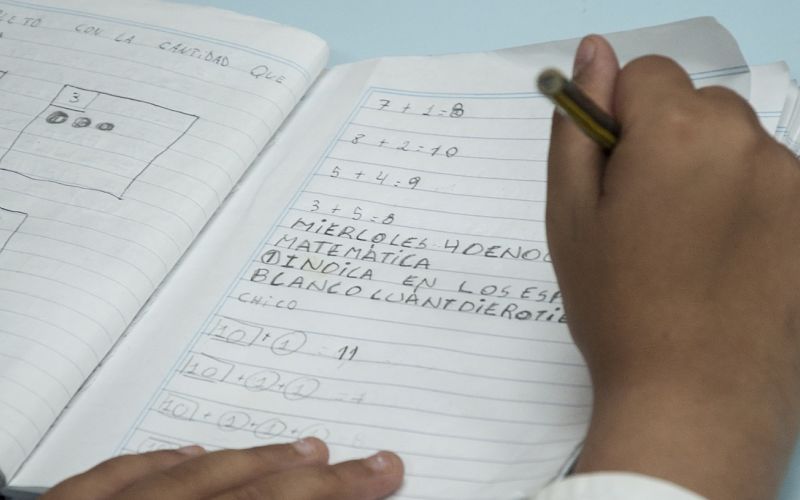 CON LA CANTIDAD QUE
3
7 + 1 = 8
8 + 2 = 10
5 + 4 = 9
3 + 5 = 8
MIERCOLES 4 DE NO
MATEMATICA
① INDICA EN LOS ESP
BLANCO CUANT DIERO TIE
CHICO
10 + 1 = 11
10 + 1 + 1 =
10 + 1 + 1 +